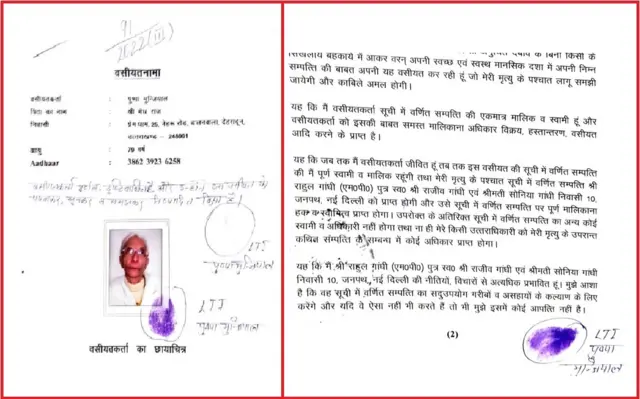 91
2022 (III)
वसीयतनामा
वसीयतकर्ता : पुष्पा मुन्जियाल
पिता का नाम : श्री मेघ राज
निवासी : प्रेम धाम, 25, नेहरू रोड, डालनवाला, देहरादून,
उत्तराखण्ड - 248001
आयु : 79 वर्ष
Aadhaar : 3862 3923 6258
LTI
पुष्पा मुन्जियाल
LTI
पुष्पा मुन्जियाल
वसीयतकर्ता का छायाचित्र
के बिना किसी के
सिखलाये बहकाये में आकर वरन् अपनी स्वच्छ एवं स्वस्थ मानसिक दशा में अपनी निम्न
सम्पत्ति की बाबत अपनी यह वसीयत कर रही हूं जो मेरी मृत्यु के पश्चात लागू समझी
जायेगी और काबिले अमल होगी।
यह कि मैं वसीयतकर्ता सूची में वर्णित सम्पत्ति की एकमात्र मालिक व स्वामी हूं और
वसीयतकर्ता को इसकी बाबत समस्त मालिकाना अधिकार विक्रय, हस्तान्तरण, वसीयत
आदि करने के प्राप्त है।
यह कि जब तक मैं वसीयतकर्ता जीवित हूं तब तक इस वसीयत की सूची में वर्णित सम्पत्ति
की मैं पूर्ण स्वामी व मालिक रहूंगी तथा मेरी मृत्यु के पश्चात सूची में वर्णित सम्पत्ति श्री
राहुल गांधी (एम०पी०) पुत्र स्व० श्री राजीव गांधी एवं श्रीमती सोनिया गांधी निवासी 10,
जनपथ, नई दिल्ली को प्राप्त होगी और उसे सूची में वर्णित सम्पत्ति पर पूर्ण मालिकाना
हक व स्वामित्व प्राप्त होगा। उपरोक्त के अतिरिक्त सूची में वर्णित सम्पत्ति का अन्य कोई
स्वामी व अधिकारी नहीं होगा तथा ना ही मेरे किसी उत्तराधिकारी को मेरी मृत्यु के उपरान्त
कथित संम्पत्ति के सम्बन्ध में कोई अधिकार प्राप्त होगा।
यह कि मैं श्री राहुल गांधी (एम०पी०) पुत्र स्व० श्री राजीव गांधी एवं श्रीमती सोनिया गांधी
निवासी 10, जनपथ, नई दिल्ली की नीतियों, विचारों से अत्यधिक प्रभावित हूं। मुझे आशा
है कि वह सूची में वर्णित सम्पत्ति का सदुउपयोग गरीबों व असहायों के कल्याण के लिए
करेंगे और यदि वे ऐसा नहीं भी करते हैं तो भी मुझे इसमें कोई आपत्ति नहीं है।
(2)
LTI
पुष्पा
मुन्जियाल